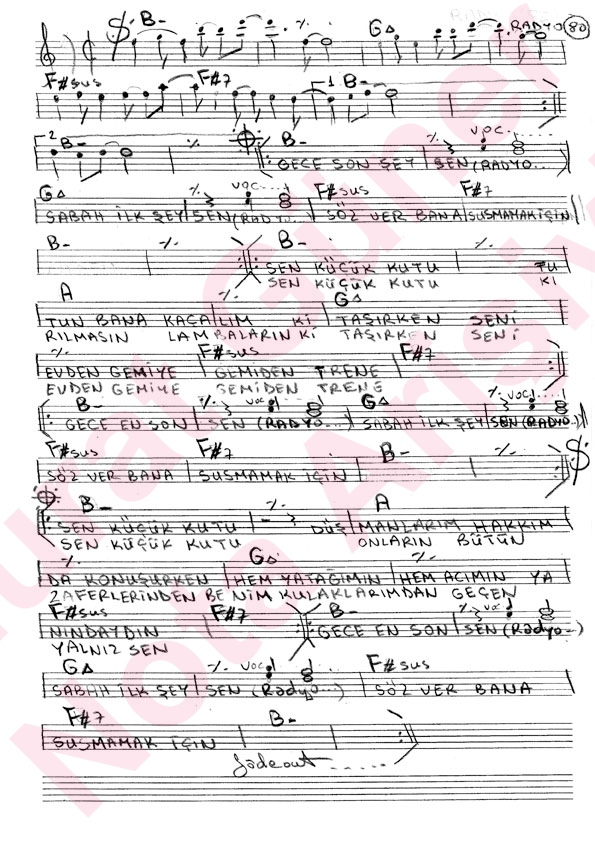 B- ٪ G△ RADYO 80
F#sus F#7 1 B-
2 B- ٪ B- ٪ VOC.
GECE SON ŞEY SEN (RADYO...
G△ ٪ VOC.... F#sus F#7
SABAH İLK ŞEY SEN (RAD... SÖZ VER BANA SUSMAMAK İÇİN
B- ٪ B- ٪
SEN KÜÇÜK KUTU TU
SEN KÜÇÜK KUTU KI
A ٪ G△
TUN BANA KAÇALIM Kİ TAŞIRKEN SENİ
RILMASIN LAMBALARIN Kİ TAŞIRKEN SENİ
٪ F#sus F#7
EVDEN GEMİYE GEMİDEN TRENE
EVDEN GEMİYE GEMİDEN TRENE
B- ٪ VOC G△ ٪ VOC
GECE EN SON SEN (RADYO...) SABAH İLK ŞEY SEN (RADYO..)
F#sus F#7 B- ٪
SÖZ VER BANA SUSMAMAK İÇİN
B- ٪ A
SEN KÜÇÜK KUTU DÜŞMANLARIM HAKKIM
SEN KÜÇÜK KUTU ONLARIN BÜTÜN
٪ G△ ٪
DA KONUŞURKEN HEM YATAĞIMIN HEM ACIMIN YA
ZAFERLERİNDEN BENİM KULAKLARIMDAN GEÇEN
F#sus F#7 B- ٪ VOC
NINDAYDIN GECE EN SON SEN (Radyo..)
YALNIZ SEN
G△ ٪ VOC F#sus
SABAH İLK ŞEY SEN (Radyo...) SÖZ VER BANA
F#7 B-
SUSMAMAK İÇİN
fadeout.......
Murat Güner
Nota Arşivi